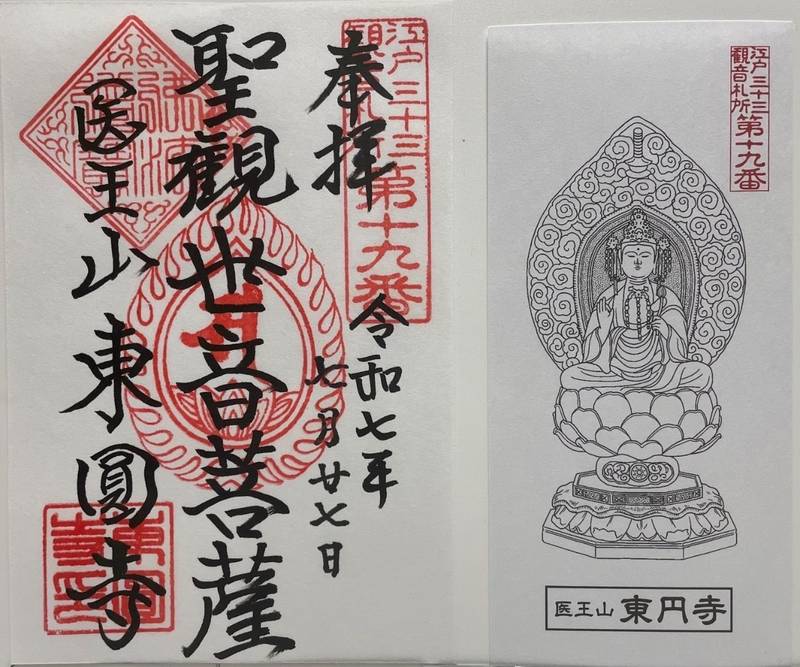 奉拝
江戸三十三
観音札所
第十九番
令和七年
七月廿七日
聖觀世音菩薩
医王山東圓寺
江戸三十三
観音札所
第十九番
医王山 東円寺